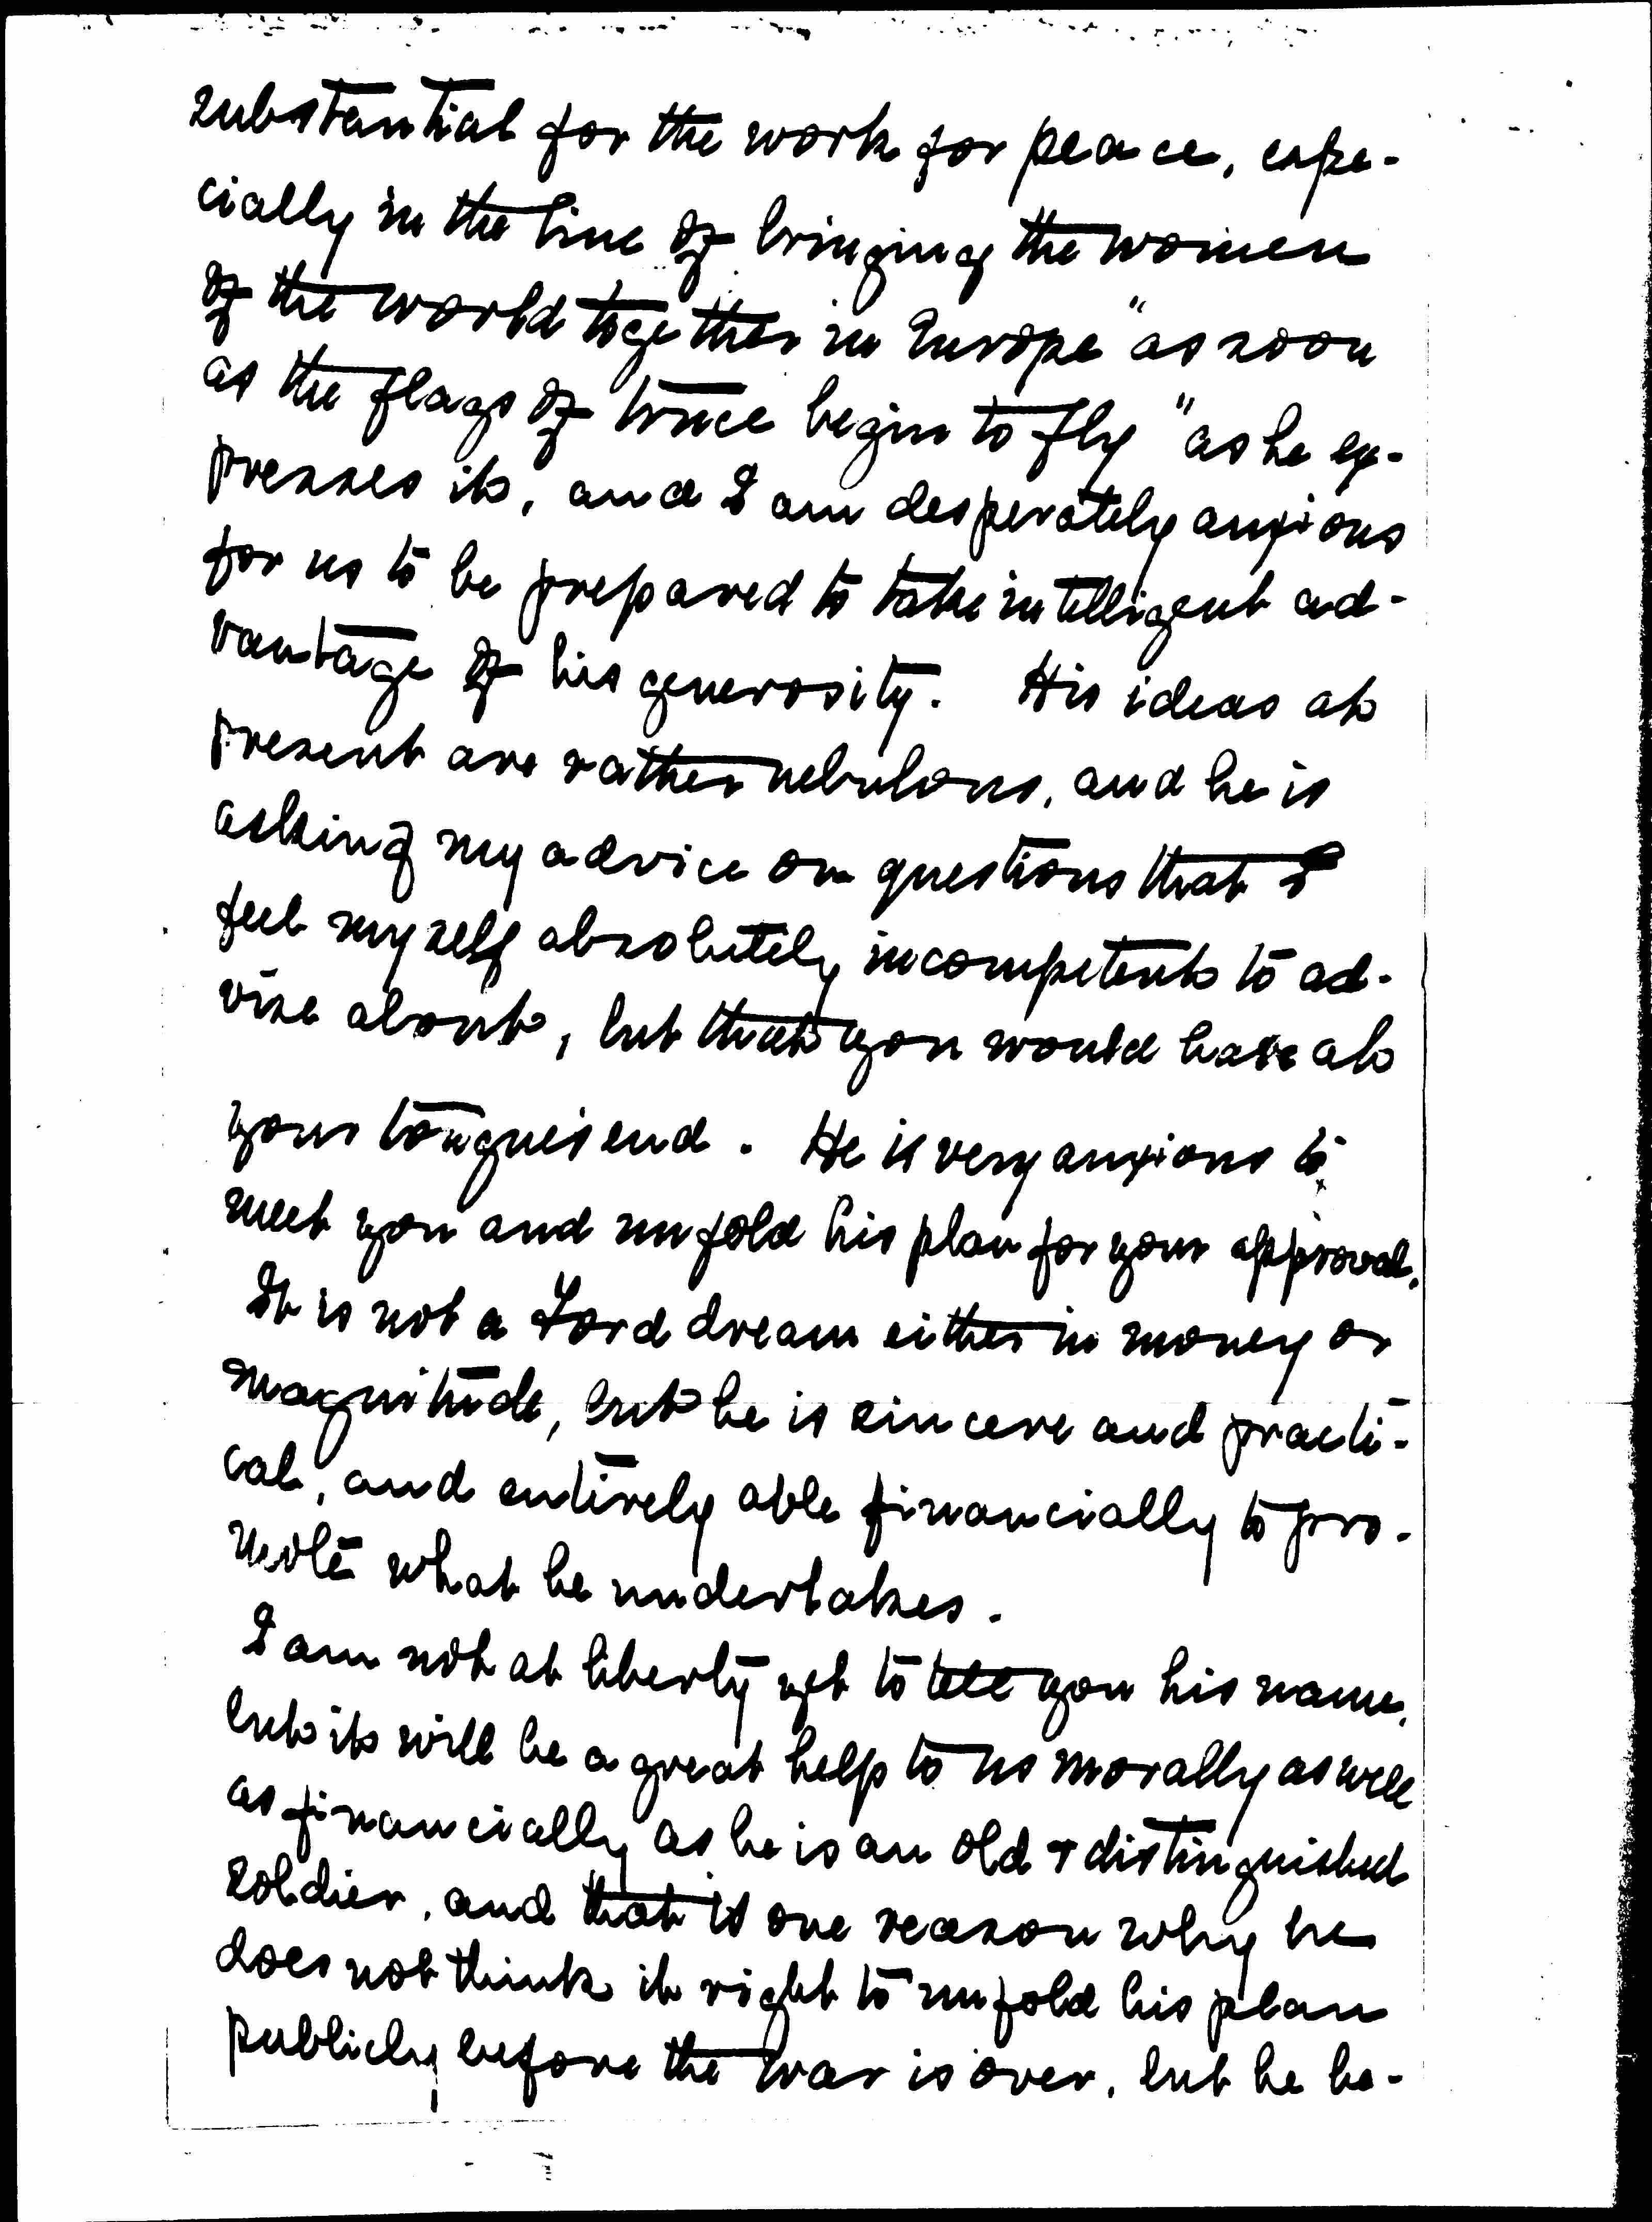 substantial for the work for peace, espe-
cially in the line of bringing the women
of the world together in Europe "as soon
as the flags of truce begin to fly" as he ex-
presses it, and I am desperately anxious
for us to be prepared to take intelligent ad-
vantage of his generosity. His ideas at
present are rather nebulous, and he is
asking my advice on questions that I
feel myself absolutely incompetent to ad-
vise about, but that you would have at
your tongues end. He is very anxious to
meet you and unfold his plan for your approval.
It is not a Ford dream either in money or
magnitude, but he is sincere and practi-
cal, and entirely able financially to pro-
mote what he undertakes.
I am not at liberty yet to tell you his name,
but it will be a great help to us morally as well
as financially as he is an old & distinguished
soldier, and that is one reason why he
does not think it right to unfold his plan
publicly before the war is over, but he be-